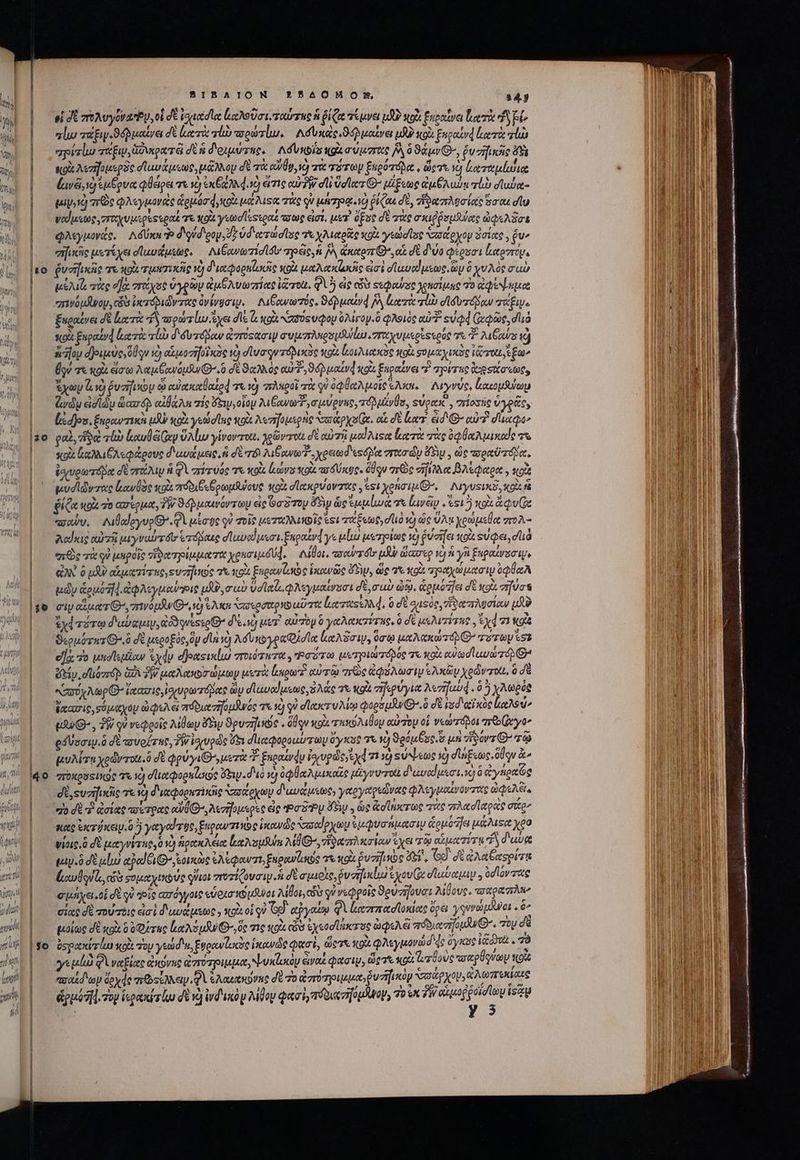 ΒΙΒΛΙΟΝ ΕΒΔΟΜΟΝ. 249
οἱ δὲ πολυγόνατον, οἱ δὲ ἰσχιάδα καλοῦσι. ταύτης ἡ ῥίζα τέμνει μὲν καὶ ξηραίνει κατὰ τὴν
τάξιν, θερμαίνει δὲ κατὰ τὴν πρώτην. Λευκὰς. θερμαίνει μὲν καὶ ξηραίνει κατὰ τὴν
τρίτην τάξιν, δὲ ἡ δριμύτης. σύμπας μὲν ὁ θάμνος, ῥυπτικῆς ἐστι
καὶ λεπτομεροῦς δυνάμεως, μᾶλλον δὲ τὰ ἄνθη, καὶ τὰ τούτων ξηρότερα. ὥστε καὶ καταμήνια
κινεῖ, καὶ ἔμβρυα φθείρει τε καὶ ἐκβάλλει. καὶ εἴ τις αὐτῶν δι' ὕδατος μίξεως ἀμβλύνει τὴν δύναμιν,
καὶ πρὸς φλεγμονὰς ἁρμόσει, καὶ μάλιστα τὰς ἐν μήτρᾳ. καὶ ῥίζαι δὲ, τῆς παραπλησίας οὖσαι δυνάμεως,
παχυμερέστεραί τε καὶ γεωδέστεραί πως εἰσί. μετ' ὄξους δὲ τὰς σκιρρουμένας ὠφελοῦσι
φλεγμονάς. Λεύκη τὸ δένδρον, ἐξ ὑδατώδους τε χλιαρᾶς καὶ γεώδους ὑπάρχον οὐσίας, ῥυπτικῆς
μετέχει δυνάμεως. Λιβανωτίδες τρεῖς, ἡ μὲν ἄκαρπος, αἱ δὲ δύο φέρουσι καρπόν,
10 ῥυπτικῆς τε καὶ τμητικῆς καὶ διαφορητικῆς καὶ μαλακτικῆς εἰσὶ δυνάμεως. ὧν ὁ χυλὸς σὺν
μέλιτι τὰς διὰ πάχος ὑγρῶν ἀμβλυωπίας ἰᾶται. τῆς δὲ εἰς τοὺς στεφάνους χρησίμης τὸ ἀφέψημα
πινόμενον, τοὺς ἰκτεριῶντας ὀνίνησιν. Λιβανωτός. θερμαίνει μὲν κατὰ τὴν δευτέραν τάξιν.
ξηραίνει δὲ κατὰ τὴν πρώτην. ἔχει δὲ τι καὶ ὑπόστυφον ὀλίγον. ὁ φλοιὸς αὐτοῦ στύφει σαφῶς, διὸ
καὶ ξηραίνει κατὰ τὴν δευτέραν ἀπόστασιν συμπληρουμένην. παχυμερέστερός τε τοῦ λιβάνου καὶ
ἧττον δριμύς, ὅθεν καὶ αἱμοπτοϊκοὺς καὶ δυσεντερικοὺς καὶ κοιλιακοὺς καὶ στομαχικοὺς ἰᾶται, ἔξωθέν
τε καὶ εἴσω λαμβανόμενος. ὁ δὲ θαλλὸς αὐτοῦ, θερμαίνει καὶ ξηραίνει τῆς τρίτης ἀποστάσεως,
ἔχων τι καὶ ῥυπτικὸν ᾧ ἀνακαθαίρει τε καὶ πληροῖ τὰ ἐν ὀφθαλμοῖς ἕλκη. Λιγνύς, καιομένων
τινῶν εἰδῶν ὡσπερ αἰθάλη τις ἐστιν, οἷον λιβανωτοῦ, σμύρνης, τερμίνθου, στύρακος, πίσσης ὑγρᾶς,
κέδρου. ξηραντικὴ μὲν καὶ γεώδης καὶ λεπτομερὴς ὑπάρχουσα. αἱ δὲ κατ' εἶδος αὐτοῦ διαφοραὶ,
20 παρὰ τὴν καυθεῖσαν ὕλην γίνονται. χρῶνται δὲ αὐτῇ μάλιστα κατὰ τὰς ὀφθαλμικάς τε
καὶ καλλιβλεφάρους δυνάμεις. ἡ δὲ τοῦ λιβανωτοῦ, χρειωδεστέρα πασῶν ἐστιν, ὡς πραϋτέρα.
ἰσχυροτέρα δὲ πάλιν ἡ τῆς πίτυός τε καὶ κώνου καὶ πεύκης. ὅθεν πρὸς πτίλλα βλέφαρα, καὶ
μυδῶντας κανθοὺς καὶ περιβεβρωμένους καὶ δακρύοντας, ἐστι χρήσιμος. Λιγυστικός, καὶ ἡ
ῥίζα καὶ τὸ σπέρμα, τῶν θερμαινόντων εἰς τοσοῦτόν ἐστιν ὡς ἔμμηνά τε κινεῖν. ἔστι δὲ καὶ ἄφυσα
πάνυ. Λιθάργυρος. τῆς μέσης ἐν τοῖς μεταλλικοῖς ἐστι τάξεως, διὸ καὶ ὡς ὕλῃ χρώμεθα πολλάκις
αὐτῇ μιγνύντες ἑτέραις δυνάμεσι. ξηραίνει γε μὴν μετρίως καὶ ῥύπτει καὶ στύφει, διὸ
πρὸς τὰ ἐν μηροῖς παρατρίμματα χρησιμεύει. Λίθοι. πάντες μὲν ὥσπερ καὶ ἡ γῆ ξηραίνουσιν.
ἀλλ' ὁ μὲν αἱματίτης, στυπτικός τε καὶ ξηραντικὸς ἱκανῶς ἐστιν, ὡς τε καὶ τραχώμασιν ὀφθαλμῶν
ἁρμόττει. ἀφλεγμάντοις μὲν, σὺν ὕδατι, φλεγμαίνουσι δὲ, σὺν ᾠῷ. ἁρμόττει δὲ καὶ πτύσεσιν
30 αἵματος, πινόμενος. καὶ ἕλκη ὑπερσαρκοῦντα καταστέλλει. ὁ δὲ σχιστὸς, παραπλησίαν μὲν
ἔχει τούτῳ δύναμιν, ἀσθενέστερος δέ. καὶ μετ' αὐτὸν ὁ γαλακτίτης. ὁ δὲ μελιτίτης, ἔχει τι καὶ
θερμότητος. ὁ δὲ μόροξος, ὃν δὴ καὶ λευκογραφίδα καλοῦσιν, ὅσῳ μαλακώτερος τούτων ἐστὶ
διὰ τὸ μηδεμίαν ἔχειν δραστικὴν ποιότητα, τοσούτῳ μετριώτερός τε καὶ ἀνωδυνώτερός
ἐστιν. διόπερ ἐπὶ τῶν μαλακοσώμων μετὰ κηρωτοῦ αὐτῷ πρὸς ἀφύλωσιν ἑλκῶν χρῶνται. ὁ δὲ
ὑπόχλωρος ἴασπις, ἰσχυροτέρας ὢν δυνάμεως, οὐλάς τε καὶ πτερύγια λεπτύνει. ὁ δὲ χλωρὸς
ἴασπις, στόμαχον ὠφελεῖ περιαπτόμενός τε καὶ ἐν δακτυλίῳ φορούμενος. ὁ δὲ ἰουδαϊκὸς καλούμενος,
τῶν ἐν νεφροῖς λίθων ἐστιν θρυπτικός. ὅθεν καὶ τηκόλιθον αὐτὸν οἱ νεώτεροι προσαγορεύουσιν.
ὁ δὲ πυρίτης, τῶν ἰσχυρῶς ἐστι διαφορούντων ὄγκους τε καὶ θρόμβους. μὴ παρόντος τῷ
μυλίτῃ χρῶνται. ὁ δὲ φρύγιος, μετὰ τοῦ ξηραίνειν ἰσχυρῶς, ἔχει τι καὶ στύψεως καὶ δήξεως, ὅθεν
40 ἀποκρουστικός τε καὶ διαφορητικός ἐστιν. διὸ καὶ ὀφθαλμικαῖς μίγνυται δυνάμεσι. καὶ ὁ ἀγήρατος
δὲ, στυπτικῆς τε καὶ διαφορητικῆς ὑπάρχων δυνάμεως, γαργαρεῶνας φλεγμαίνοντας ὠφελεῖ.
τὸ δὲ τῆς ἀσίας πέτρας ἄνθος, λεπτομερὲς εἰς τοσοῦτόν ἐστιν, ὡς ἀδήκτως τὰς πλαδαρὰς σάρκας
ἐκτήκειν. ὁ δὲ γαγάτης, ξηραντικὸς ἱκανῶς ὑπάρχων ἐμφυσήμασιν ἁρμόττει μάλιστα χρονίοις.
ὁ δὲ μαγνίτης, ὁ καὶ ἡρακλεία καλουμένη λίθος, παραπλησίαν ἔχει τῷ αἱματίτῃ τὴν δύναμιν.
ὁ δὲ μὴν ἀράβιος, ἐοικὼς ἐλέφαντι, ξηραντικός τε καὶ ῥυπτικός ἐστι. τοῦ δὲ ἀλαβαστρίτη
καυθέντα, τοὺς στομαχικοὺς ἔνιοι ποτίζουσιν. ἡ δὲ σμύρις, ῥυπτικὴν ἔχουσα δύναμιν, ὀδόντας
σμήχει. οἱ δὲ ἐν τοῖς σπόγγοις εὑρισκόμενοι λίθοι, τοὺς ἐν νεφροῖς θρύπτουσι λίθους. παραπλησίας
δὲ τούτοις εἰσὶ δυνάμεως, καὶ οἱ ἐν τῷ ἀργαίῳ τῆς καππαδοκίας ὄρει γεννώμενοι. ὁμοίως
δὲ καὶ ὁ ὀφίτης καλούμενος, ὅς τις καὶ τοὺς ἐχεοδήκτους ὠφελεῖ περιαπτόμενος. τὸν δὲ
50 ὀστρακίτην καὶ τὸν γεώδη, ξηραντικοὺς ἱκανῶς φασὶ, ὥστε καὶ φλεγμονώδεις ὄγκους ἰᾶσθαι. τὸ
γε μὴν τῆς ναξίας ἀκόνης ἀπότριμμα, ψυκτικὸν εἶναί φασιν, ὥστε καὶ τιτθοὺς παρθένων καὶ
παίδων ὄρχεις προστέλλειν. τῆς ἐλαιακόνης δὲ τὸ ἀπότριμμα, ῥυπτικὸν ὑπάρχον, ἀλωπεκίαις
ἁρμόττει. τὸν ἱερακίτην δὲ καὶ ἰνδικὸν λίθον φασὶ, περιαπτόμενον, τὸ ἐκ τῶν αἱμορροΐδων ἱστᾶν
y 3